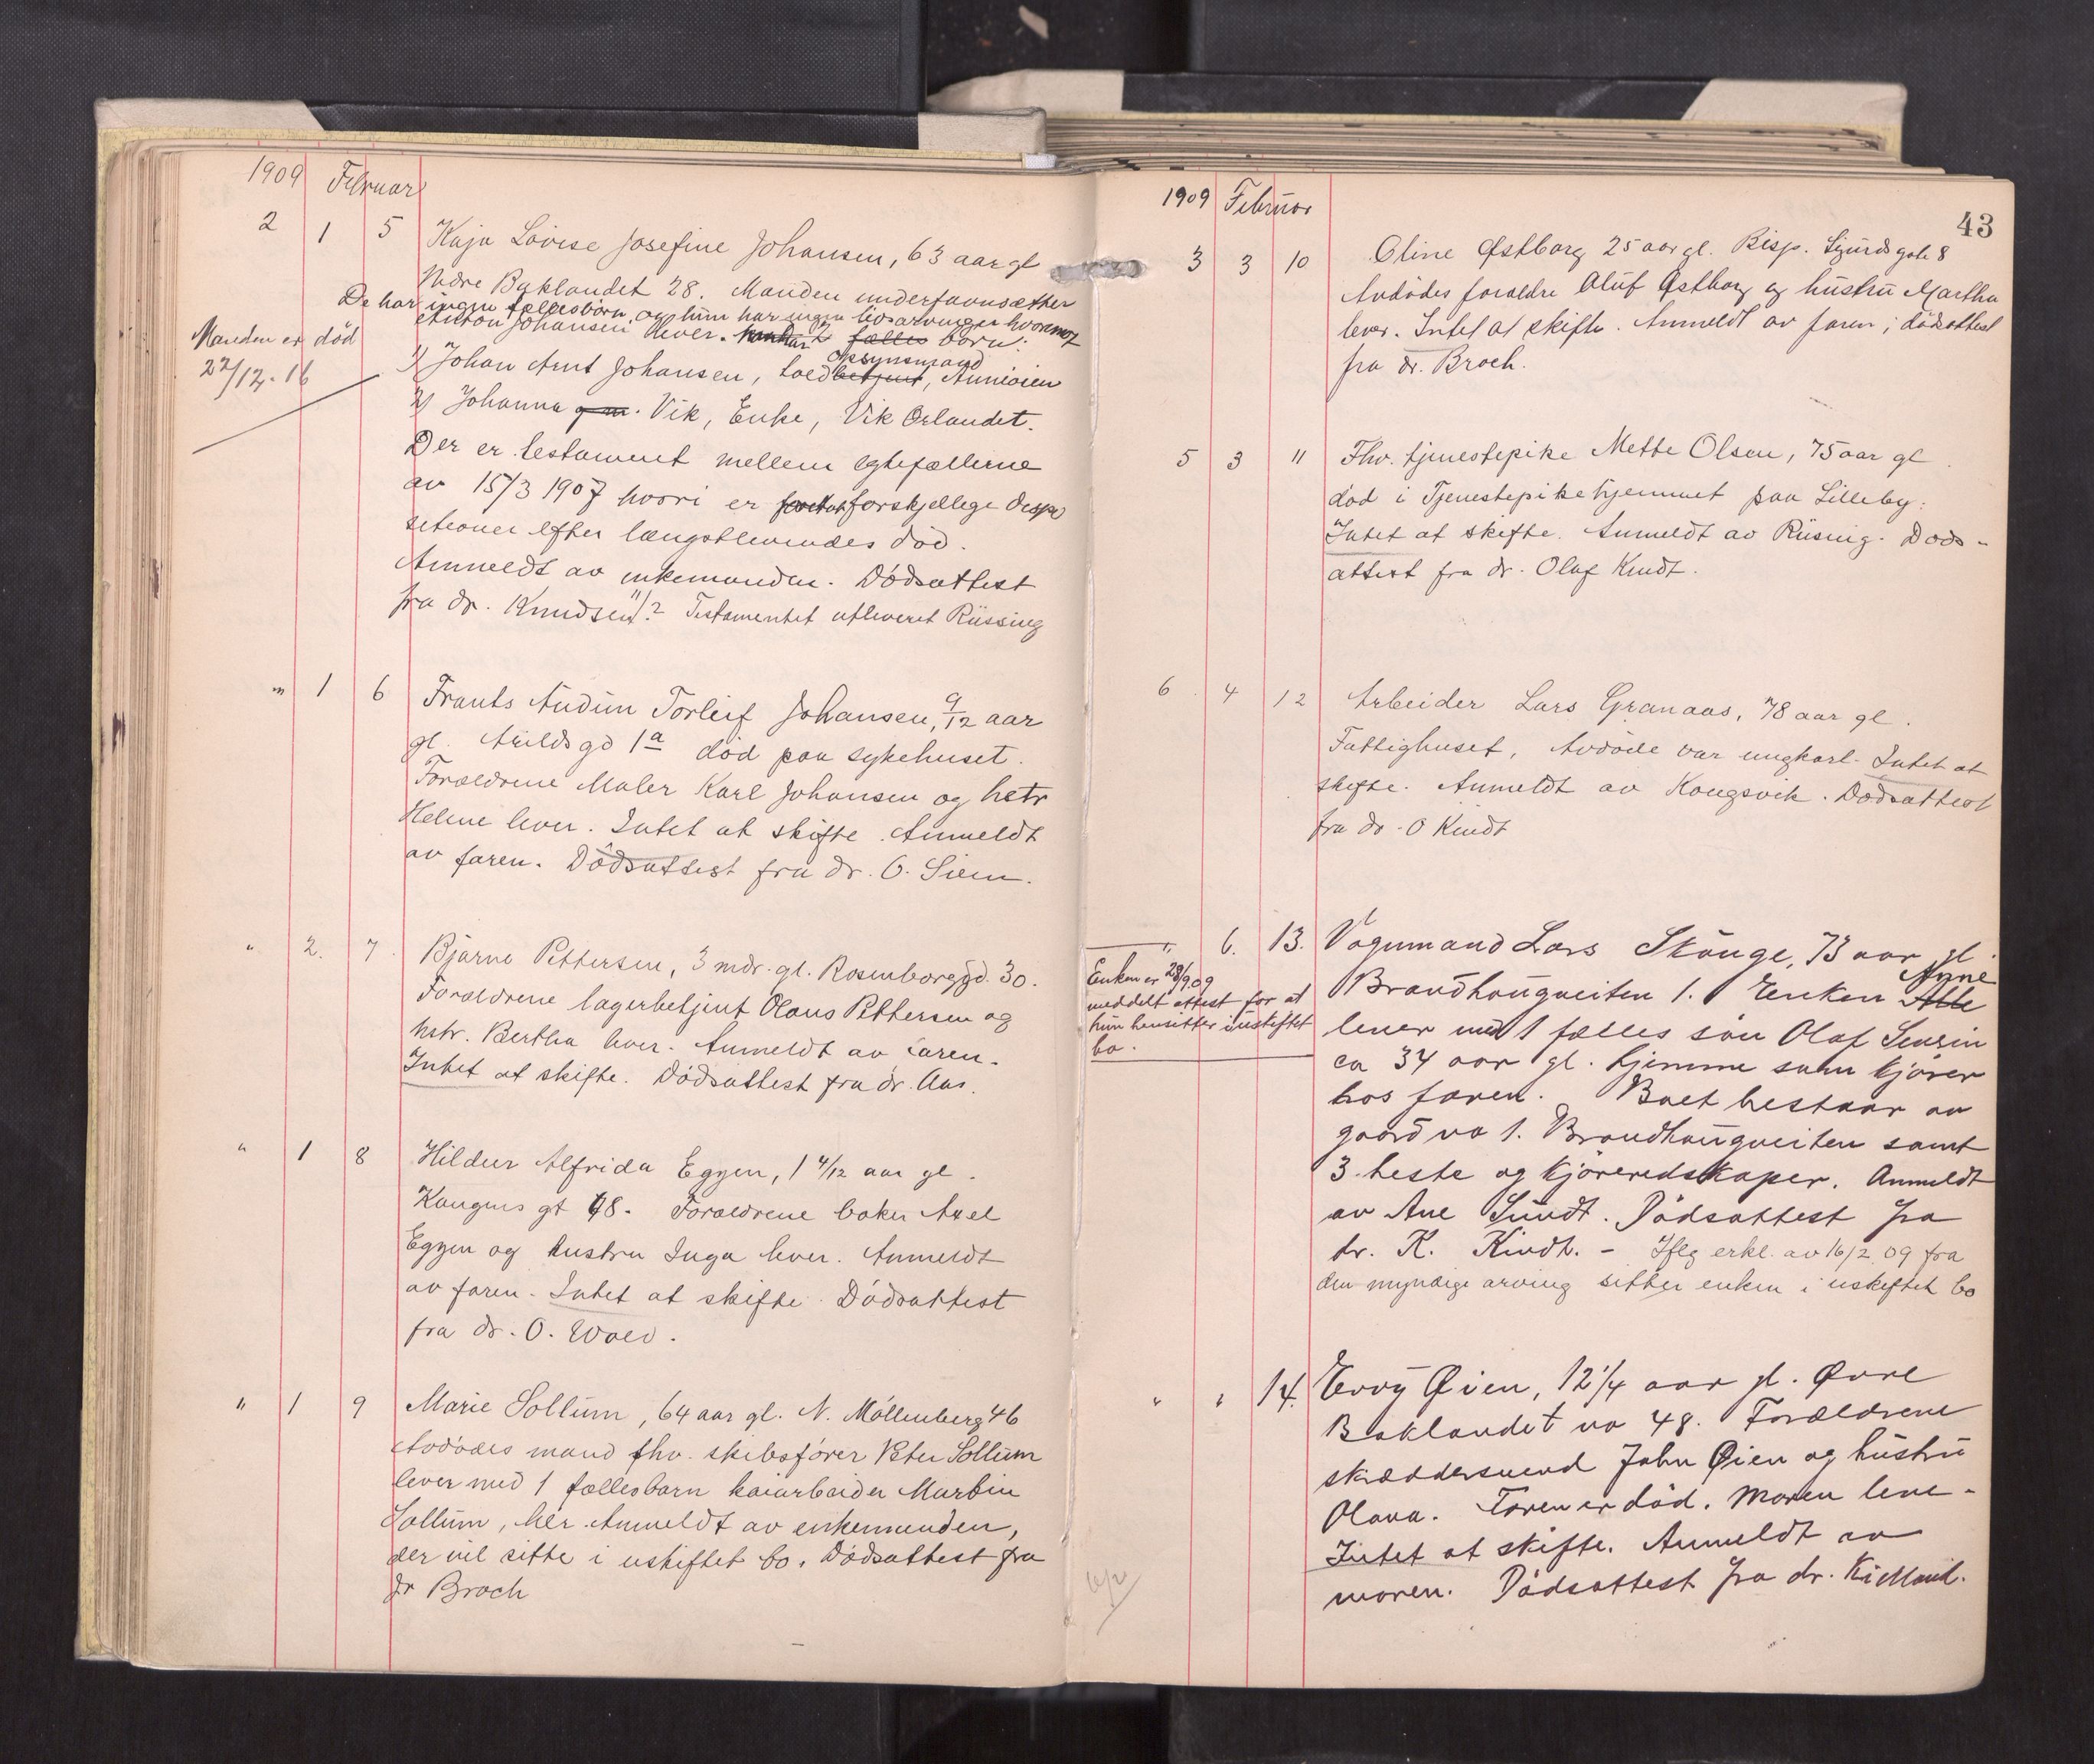 1909 Februar
2 1 5 Kaja Lovise Josefine Johansen, 63 aar gl
Nedre Baklandet 28. Manden undertavnsætter
De har ingen fællesbørn og hun har ingen livsarvinger hvorimot
Anton Johansen lever. han har 2 fælles børn:
Manden er død
22/12.16
opsynsmand
1) Johan Arnt Johansen, toldbetjent,
2) Johanna g.m. Vik, Enke, Vik Ørlandet.
Der er testament mellem egtefællerne
av 15/3 1907 hvori er forskjellige dispo
sitioner efter længstlevendes død.
Anmeldt av enkemanden. Dødsattest
fra dr. Knudsen. 11/2 Testamentet utleveret Riissing
" 1 6 Frants Audun Torleif Johansen, 9/12 aar
gl. Arildsgd 1a død paa sykehuset.
Forældrene Maler Karl Johansen og hstr
Helene lever. Intet at skifte. Anmeldt
av faren. Dødsattest fra dr. O. Siem.
" 2. 7. Bjarne Pettersen, 3 mdr. gl. Rosenborggd. 30.
Forældrene lagerbetjent Olaus Pettersen og
hstr. Bertha lever. Anmeldt av faren.
Intet at skifte. Dødsattest fra dr. Aas.
" 1 8 Hildur Alfrida Eggen, 1 4/12 aar gl.
Kongens gt 48. Forældrene baker Axel
Eggen og hustru Inga lever. Anmeldt
av faren. Intet at skifte. Dødsattest
fra dr. O. Wold.
" 1 9 Marie Sollum, 64 aar gl. N. Møllenberg 46
Avdødes mand fhv. skibsfører Peter Sollum
lever med 1 fællesbarn kaiarbeider Martin
Sollum, her. Anmeldt av enkemanden,
der vil sitte i uskiftet bo. Dødsattest fra
dr Broch
1909 Februar
43
3 3 10 Oline Østborg 25 aar gl. Bisp. Sigurds gate 8
Avdødes forældre Oluf Østborg og hustru Martha
lever. Intet at skifte. Anmeldt av faren; dødsattest
fra dr. Broch.
5 3 11 Fhv. tjenestepike Mette Olsen, 75 aar gl.
død i Tjenestepikehjemmet paa Lilleby.
Intet at skifte. Anmeldt av Riising. Døds-
attest fra dr. Olaf Kindt.
6 4 12 Arbeider Lars Granaas, 78 aar gl.
Fattighuset, Avdøde var ungkarl. Intet at
skifte. Anmeldt av Kongsvik. Dødsattest
fra dr. O Kindt
" 6. 13. Vognmand Lars Skauge, 73 aar gl
Enken er 28/9 09
meddelt attest for at
hun hensitter i uskiftet
bo.
Brandhaugveiten 1. Enken Agne
lever med 1 fælles søn Olaf Sevrin
ca 34 aar gl. hjemme som kjører
hos faren. Boet bestaar av
gaard no 1. Brandhaugveiten samt
3 heste og kjøreredskaper. Anmeldt
av Ane Sundt. Dødsattest fra
dr. K. Kindt. - Iflg erkl. av 16/2 09 fra
den myndige arving sitter enken i uskiftet bo
" " 14. Øien, 12 1/4 aar gl. Øvre
Baklandet no 48. Forældrene
skræddersvend John Øien og hustru
Olava. Faren er død. Moren leve-
Intet at skifte. Anmeldt av
moren. Dødsattest fra dr. Kielland.